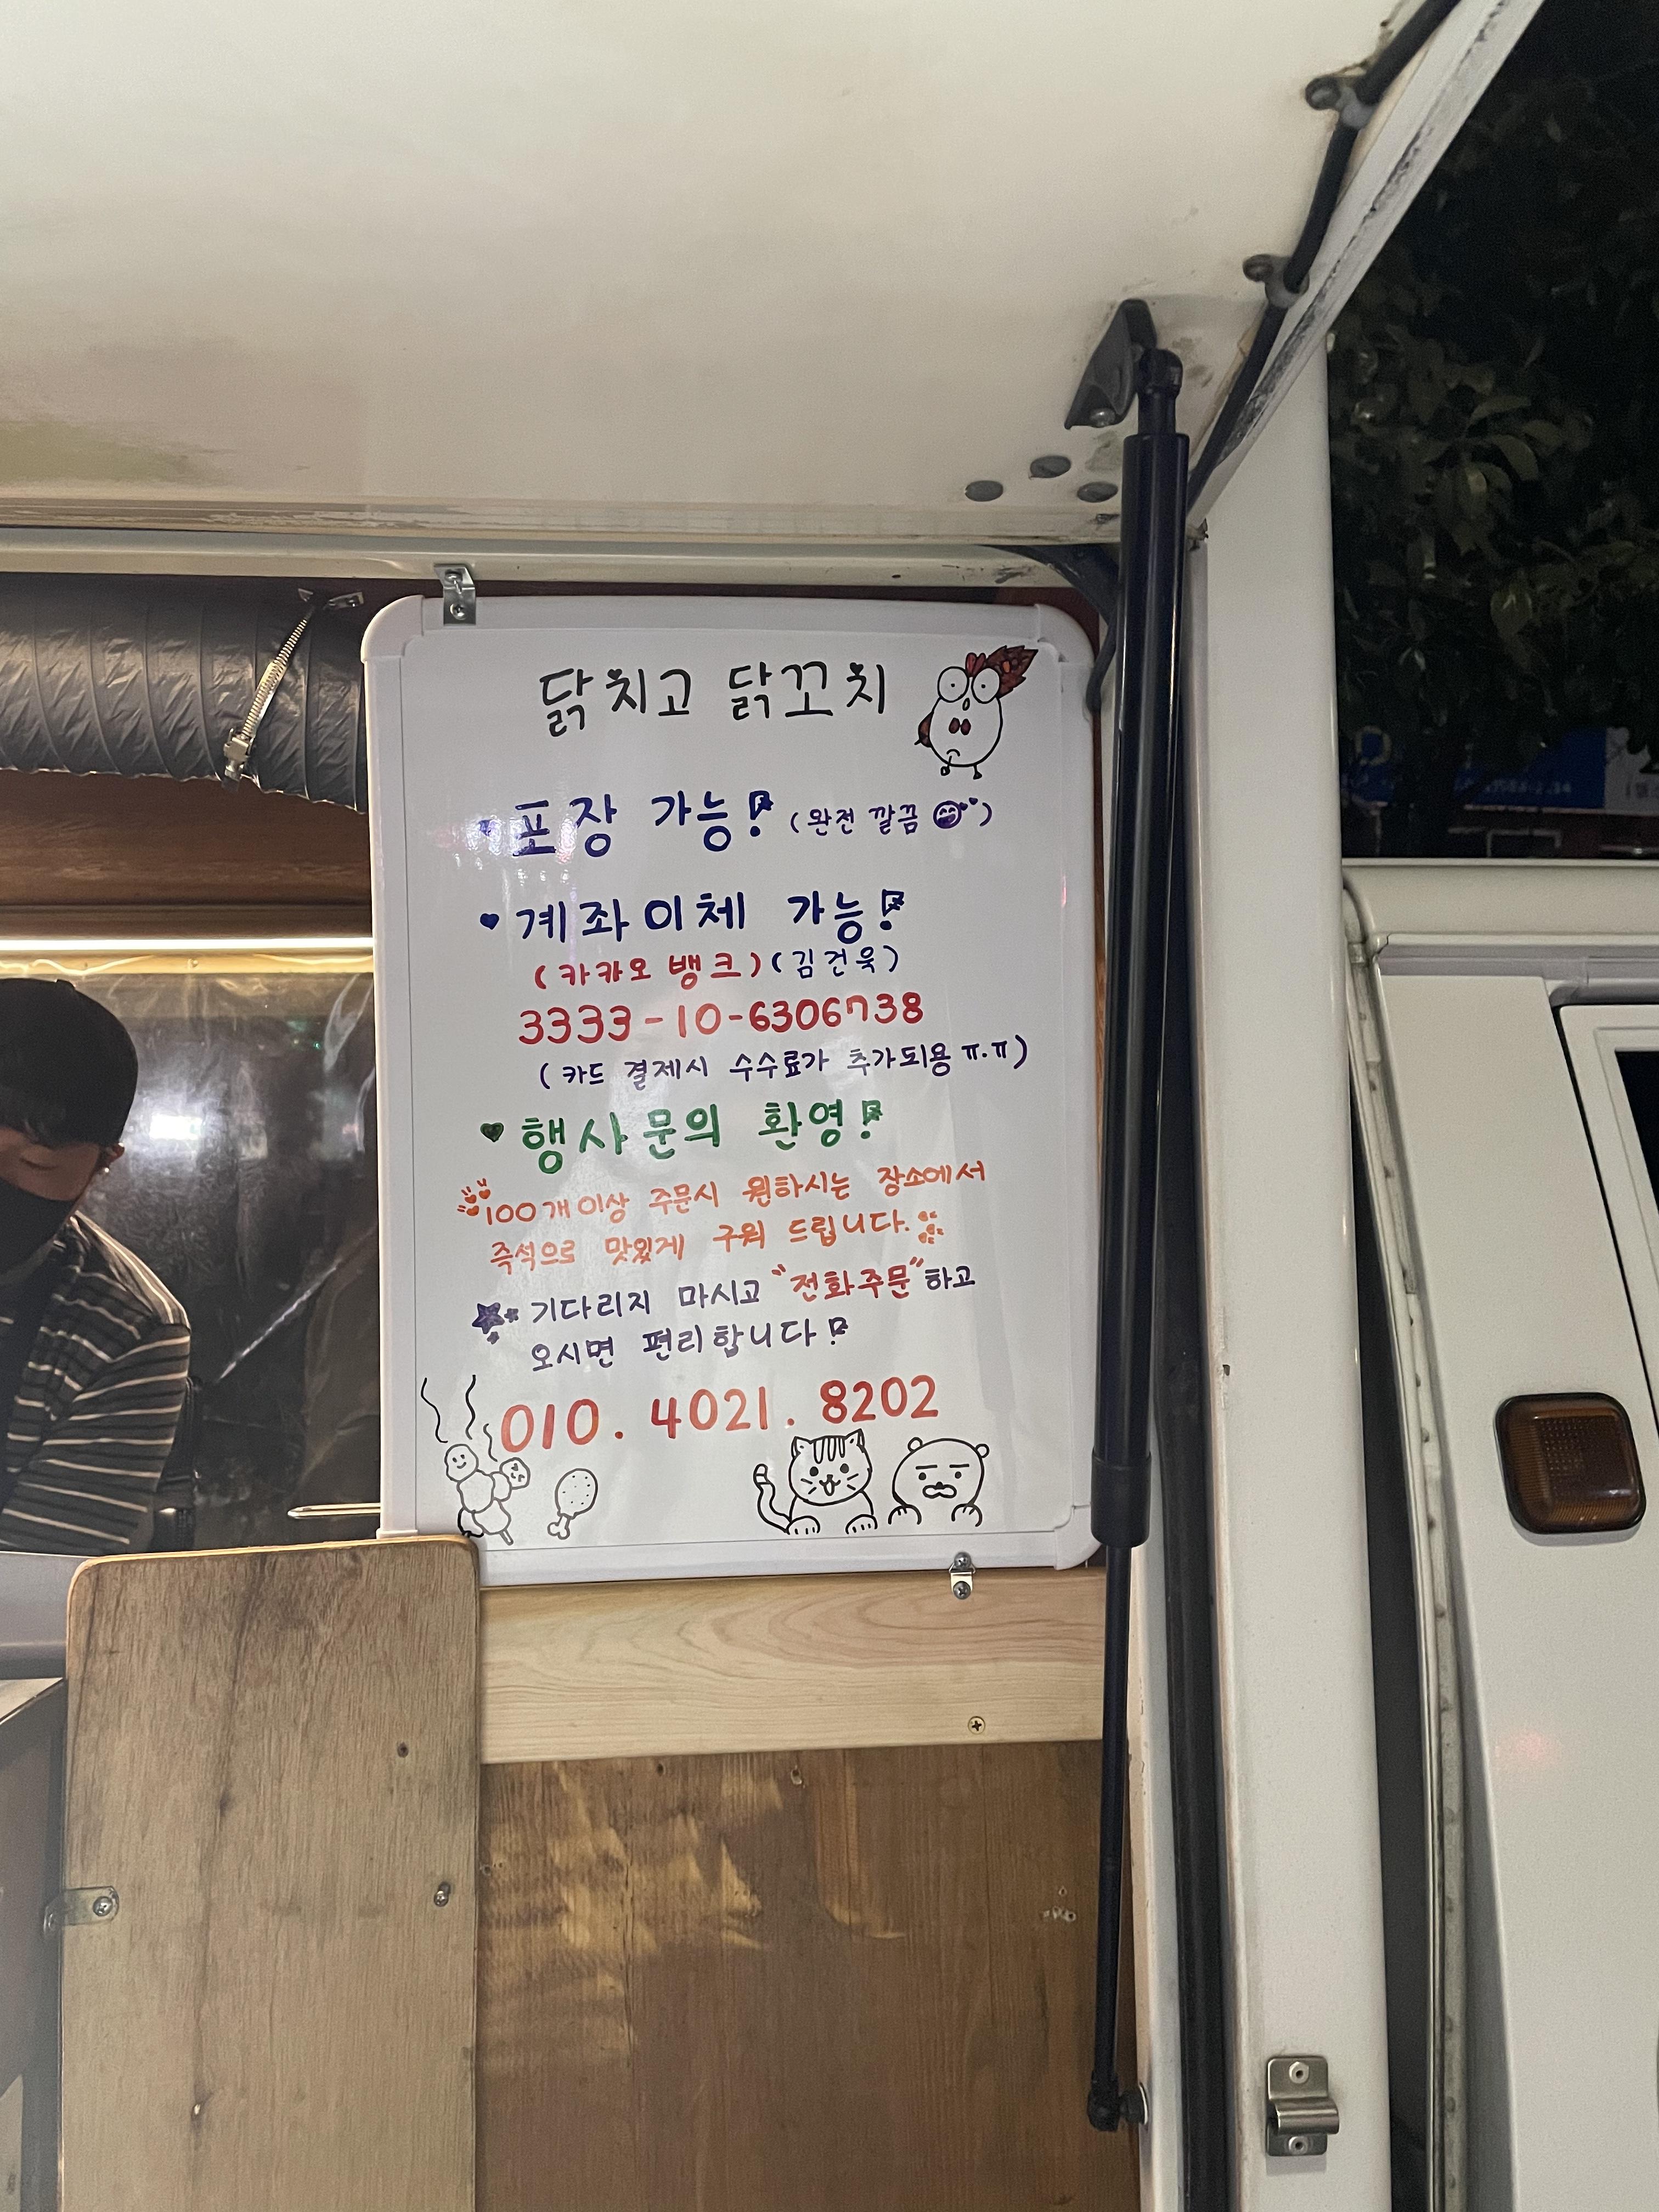 닭치고 닭꼬치
포장 가능! (완전 깔끔)
계좌이체 가능!
(카카오 뱅크) (김건욱)
3333-10-6306738
(카드 결제시 수수료가 추가되용 ㅠ.ㅠ)
행사문의 환영!
100개이상 주문시 원하시는 장소에서
즉석으로 맛있게 구워 드립니다.
기다리지 마시고 "전화주문"하고
오시면 편리합니다!
010. 4021. 8202